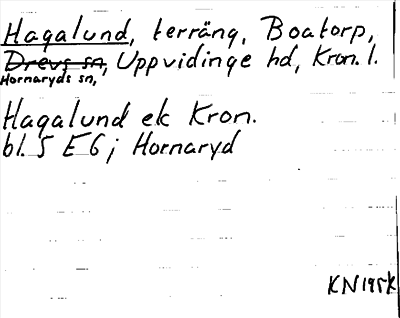 Hagalund, terräng, Boatorp,
Drevs sn, Uppvidinge hd, Kron. l.
Hornaryds sn,
Hagalund ek Kron.
bl. 5 E 6; Hornaryd